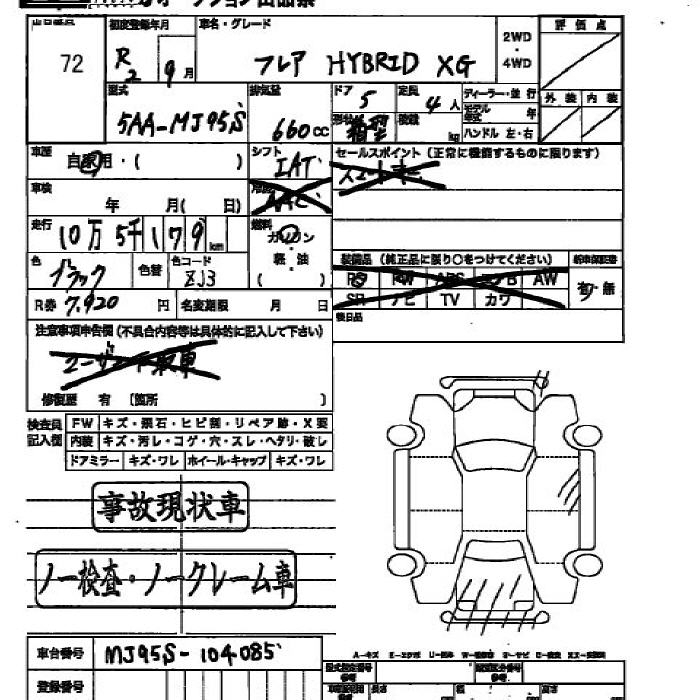 出品番号 初度登録年月 車名・グレード 2WD・4WD 評価点
72 R2 9月 フレア HYBRID XG
型式 排気量 ドア 定員 ディーラー・並行 外装 内装
5AA-MJ95S 660cc 5 4人 モデル年式 年
形状 箱型 積載 kg ハンドル 左・右
車歴 自家用・( ) シフト IAT セールスポイント (正常に機能するものに限ります)
車検 年 月( 日) AAC
走行 10万5千179km 燃料 ガソリン・軽油 ( )
装備品 (純正品に限り〇をつけてください) 新車保証書
色 ブラック 色替 色コード ZJ3
PS PW ABS エアB AW 有・無
SR ナビ TV カワ
R券 7,920円 名変期限 月 日
後日品
注意事項申告欄 (不具合内容等は具体的に記入して下さい)
ユーザー買取車
修復歴 有 [箇所 ]
検査員記入欄 FW キズ・飛石・ヒビ割・リペア跡・X要
内装 キズ・汚レ・コゲ・穴・スレ・ヘタリ・破レ
ドアミラー キズ・ワレ ホイール・キャップ キズ・ワレ
事故現状車
ノー検査・ノークレーム車
車台番号 MJ95S-104085
登録番号
型式指定番号 類別区分番号
長さ 幅 高さ